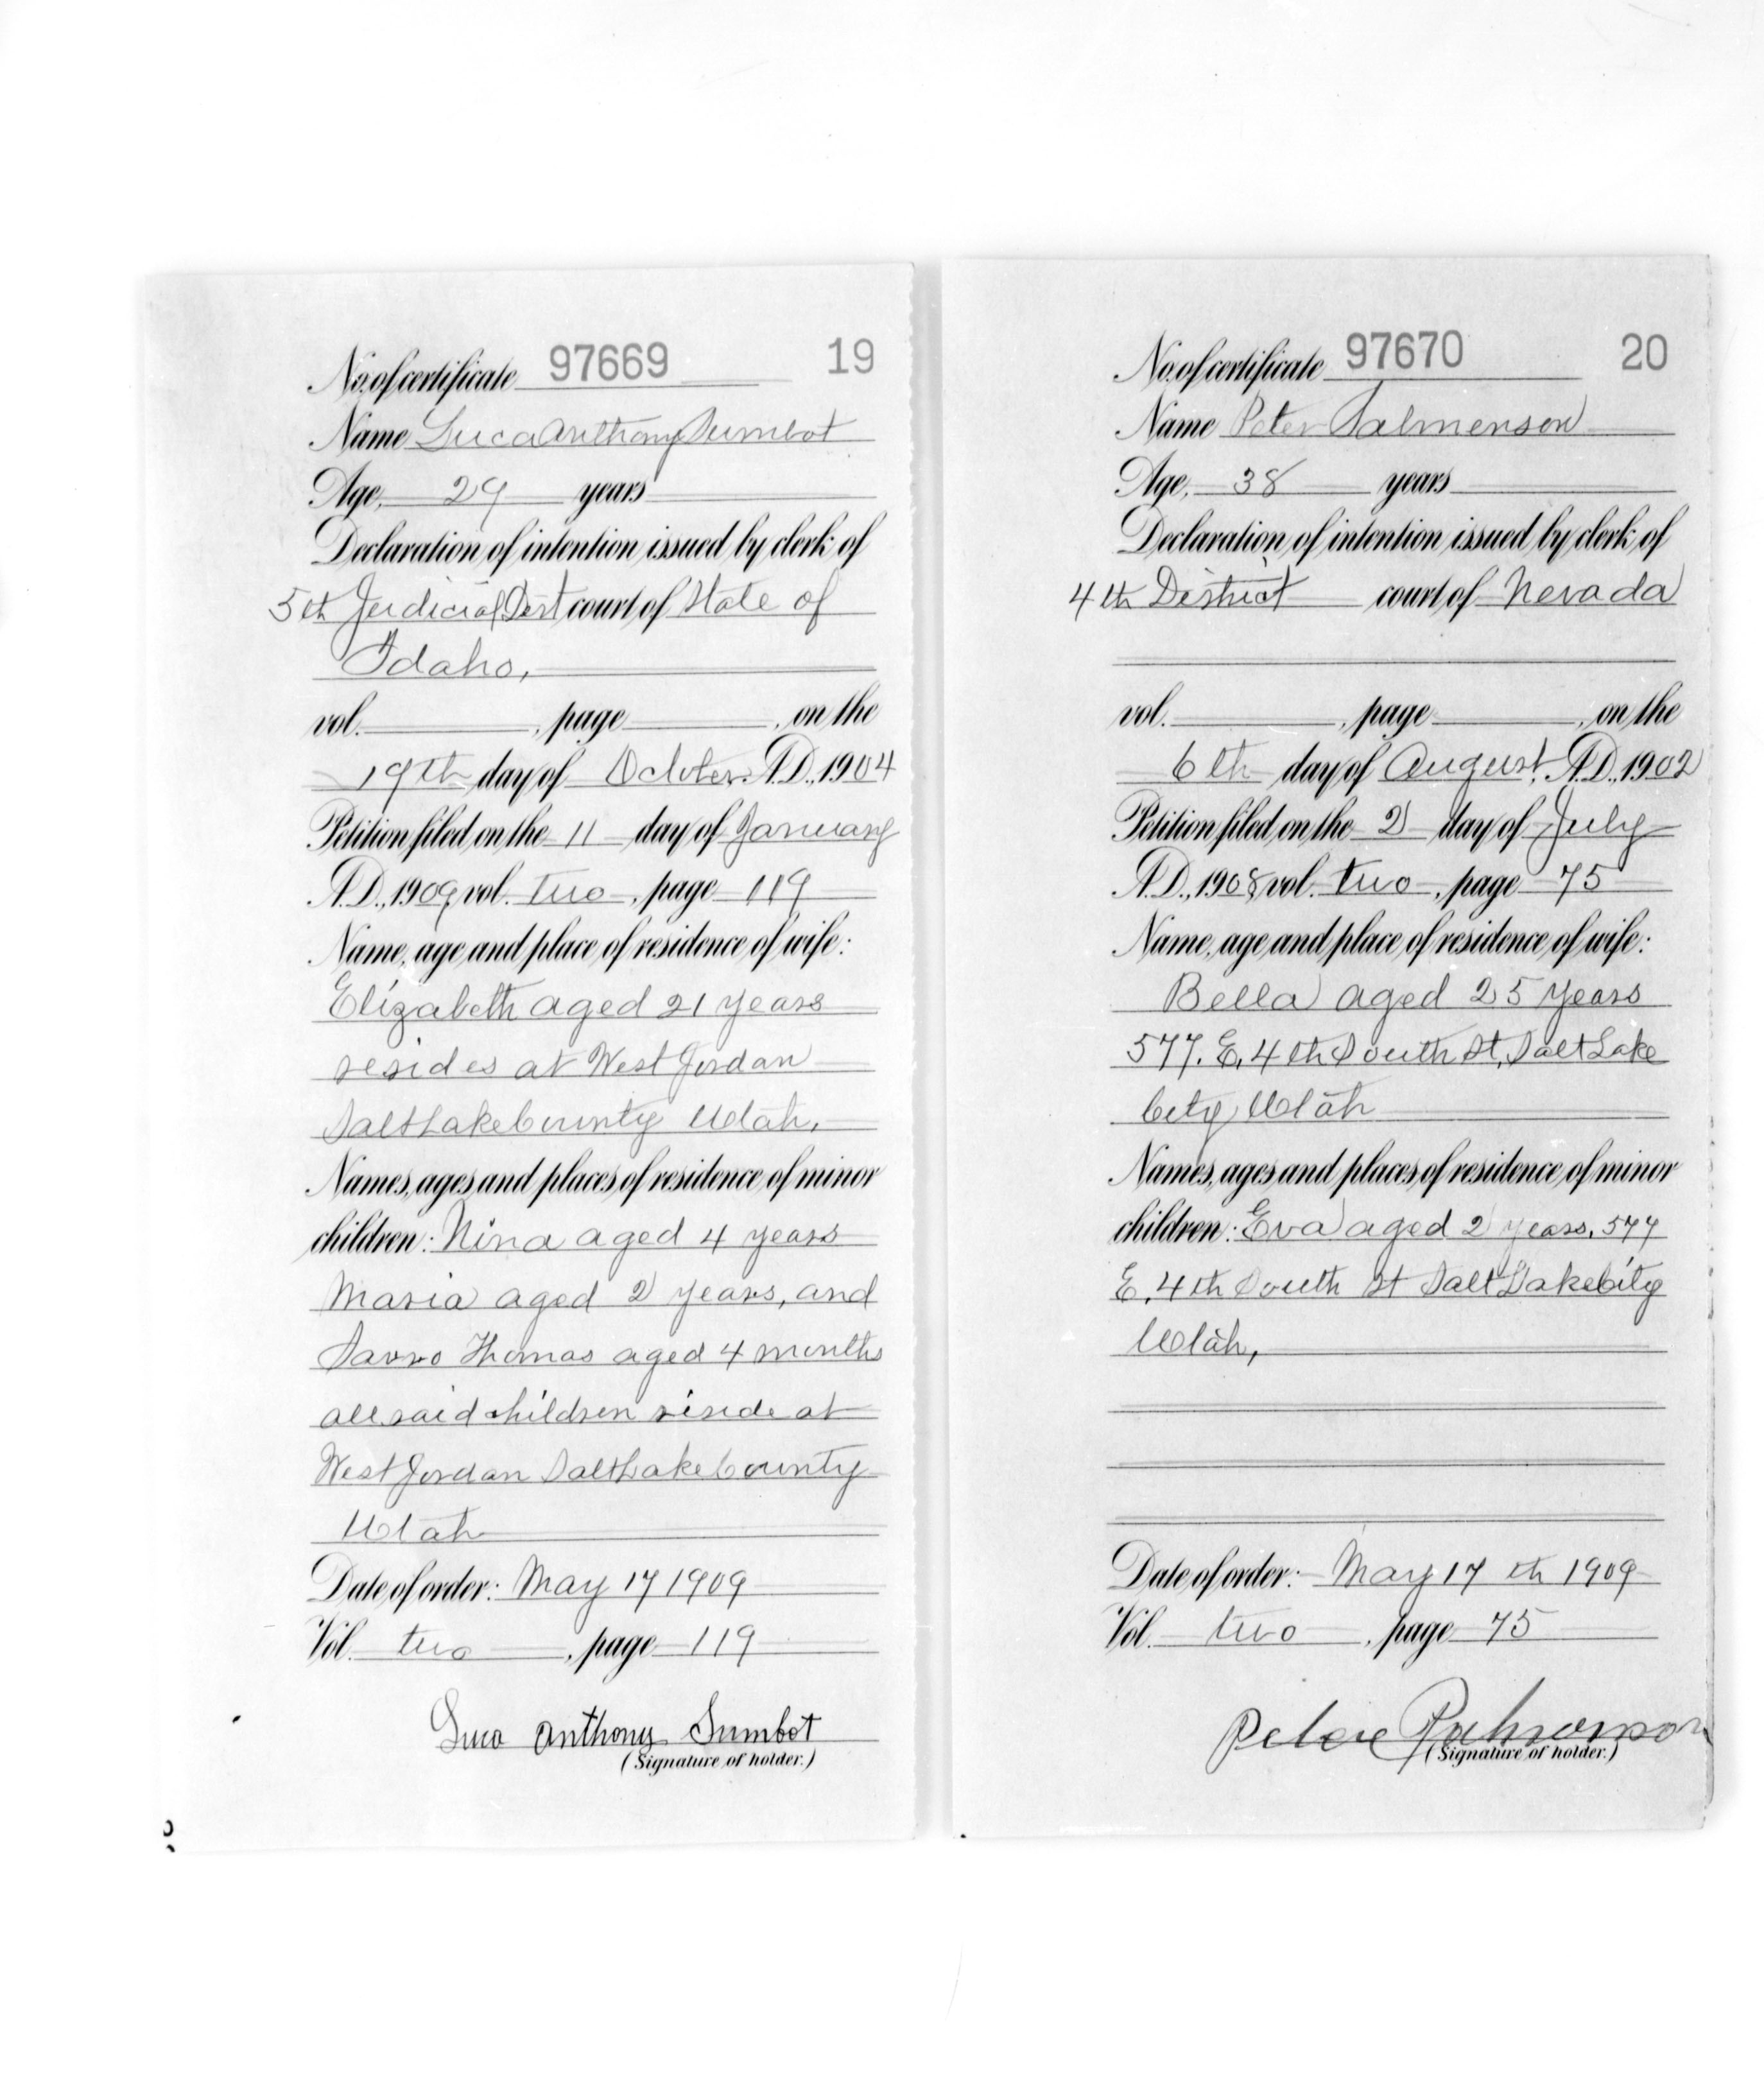 No. of certificate 97669 19
Name Luca Anthony Sumbot
Age, 29 years
Declaration of intention issued by clerk of
5th Judicial Dist court of State of
Idaho,
vol. , page , on the
19th day of October A.D., 1904
Petition filed on the 11 day of January
A.D., 1909 vol. two , page 119
Name, age and place of residence of wife:
Elizabeth aged 21 years
resides at West Jordan
Salt Lake County Utah,
Names, ages and places of residence of minor
children: Nina aged 4 years
Maria aged 2 years, and
Savvo Thomas aged 4 months
all said children reside at
West Jordan Salt Lake County
Utah
Date of order: May 17 1909
Vol. two , page 119
Luca Anthony Sumbot
(Signature of holder.)
No. of certificate 97670 20
Name Peter Salmenson
Age, 38 years
Declaration of intention issued by clerk of
4th District court of Nevada
vol. , page , on the
6th day of August, A.D., 1902
Petition filed on the 2 day of July
A.D., 1908 vol. two , page 75
Name, age and place of residence of wife:
Bella aged 25 years
577. E. 4th South St, Salt Lake
City Utah
Names, ages and places of residence of minor
children: Eva aged 2 years. 577
E. 4th South St Salt Lake City
Utah,
Date of order: May 17th 1909
Vol. two , page 75
(Signature of holder.)